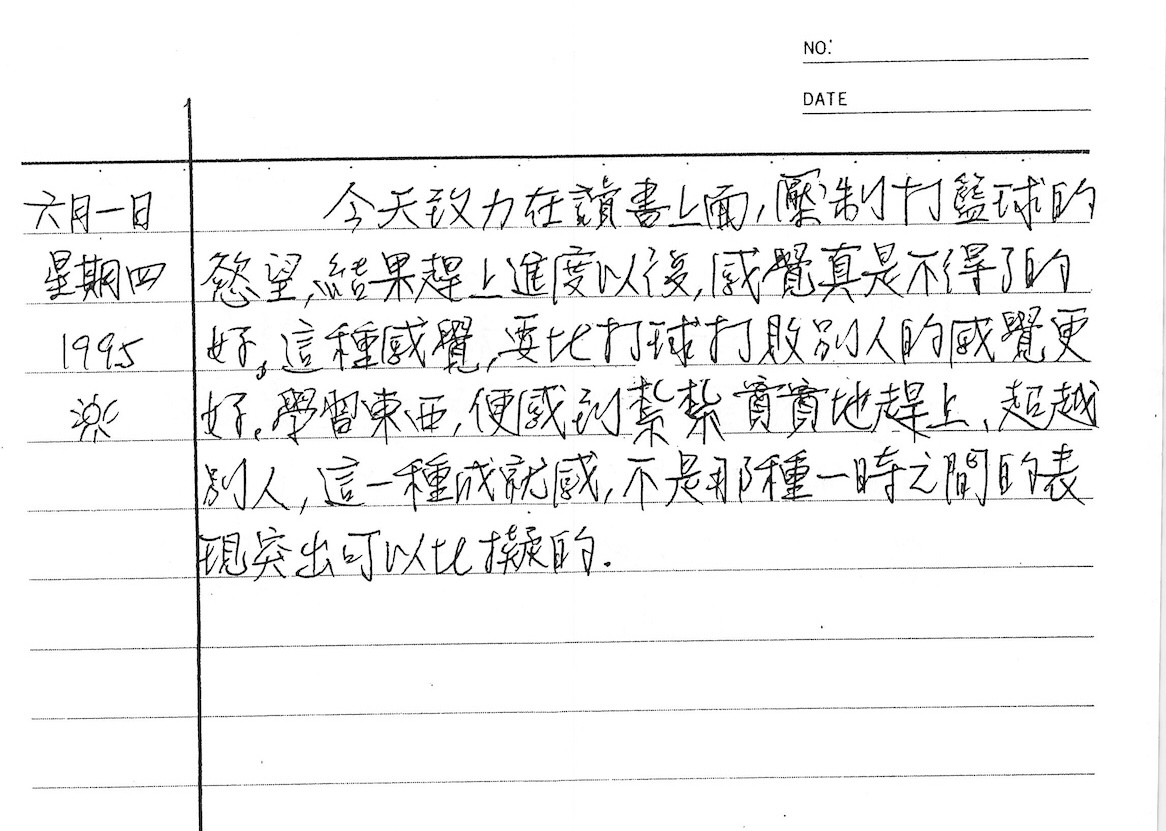 NO:
DATE
六月一日
星期四
1995
今天致力在讀書上面,壓制打籃球的
慾望,結果趕上進度以後,感覺真是不得了的
好。這種感覺,要比打球打敗別人的感覺更
好。學習東西,便感到紮紮實實地趕上、超越
別人,這一種成就感,不是那種一時之間的表
現突出可以比擬的.